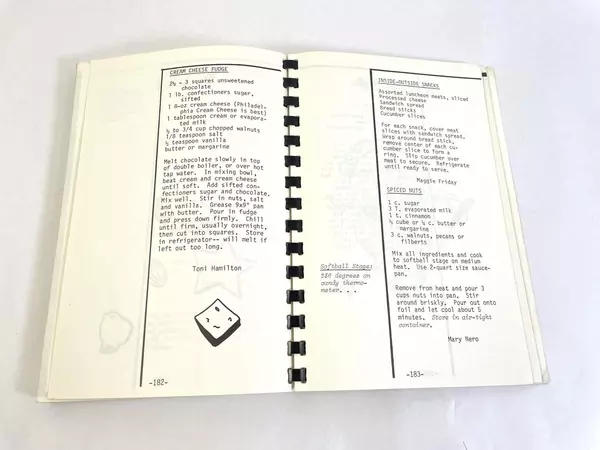 CREAM CHEESE FUDGE
2½ - 3 squares unsweetened
chocolate
1 lb. confectioners sugar,
sifted
1 8-oz cream cheese (Philadel-
phia Cream Cheese is best)
1 tablespoon cream or evapora-
ted milk
½ to 3/4 cup chopped walnuts
1/8 teaspoon salt
½ teaspoon vanilla
butter or margarine
Melt chocolate slowly in top
of double boiler, or over hot
tap water. In mixing bowl,
beat cream and cream cheese
until soft. Add sifted con-
fectioners sugar and chocolate.
Mix well. Stir in nuts, salt
and vanilla. Grease 9x9" pan
with butter. Pour in fudge
and press down firmly. Chill
until firm, usually overnight,
then cut into squares. Store
in refrigerator-- will melt if
left out too long.
Toni Hamilton
-182-
INSIDE-OUTSIDE SNACKS
Assorted luncheon meats, sliced
Processed cheese
Sandwich spread
Bread sticks
Cucumber slices
For each snack, cover meat
slices with sandwich spread,
Wrap around bread stick,
remove center of each cu-
cumber slice to form a
ring. Slip cucumber over
meat to secure. Refrigerate
until ready to serve.
Maggie Friday
SPICED NUTS
1 c. sugar
3 T. evaporated milk
1 t. cinnamon
½ cube or ¼ c. butter or
margarine
3 c. walnuts, pecans or
filberts
Mix all ingredients and cook
to softball stage on medium
heat. Use 2-quart size sauce-
pan.
Softball Stage:
degrees on
candy thermo-
meter. . .
Remove from heat and pour 3
cups nuts into pan. Stir
around briskly. Pour out onto
foil and let cool about 5
minutes. Store in air-tight
container.
Mary Nero
-183-